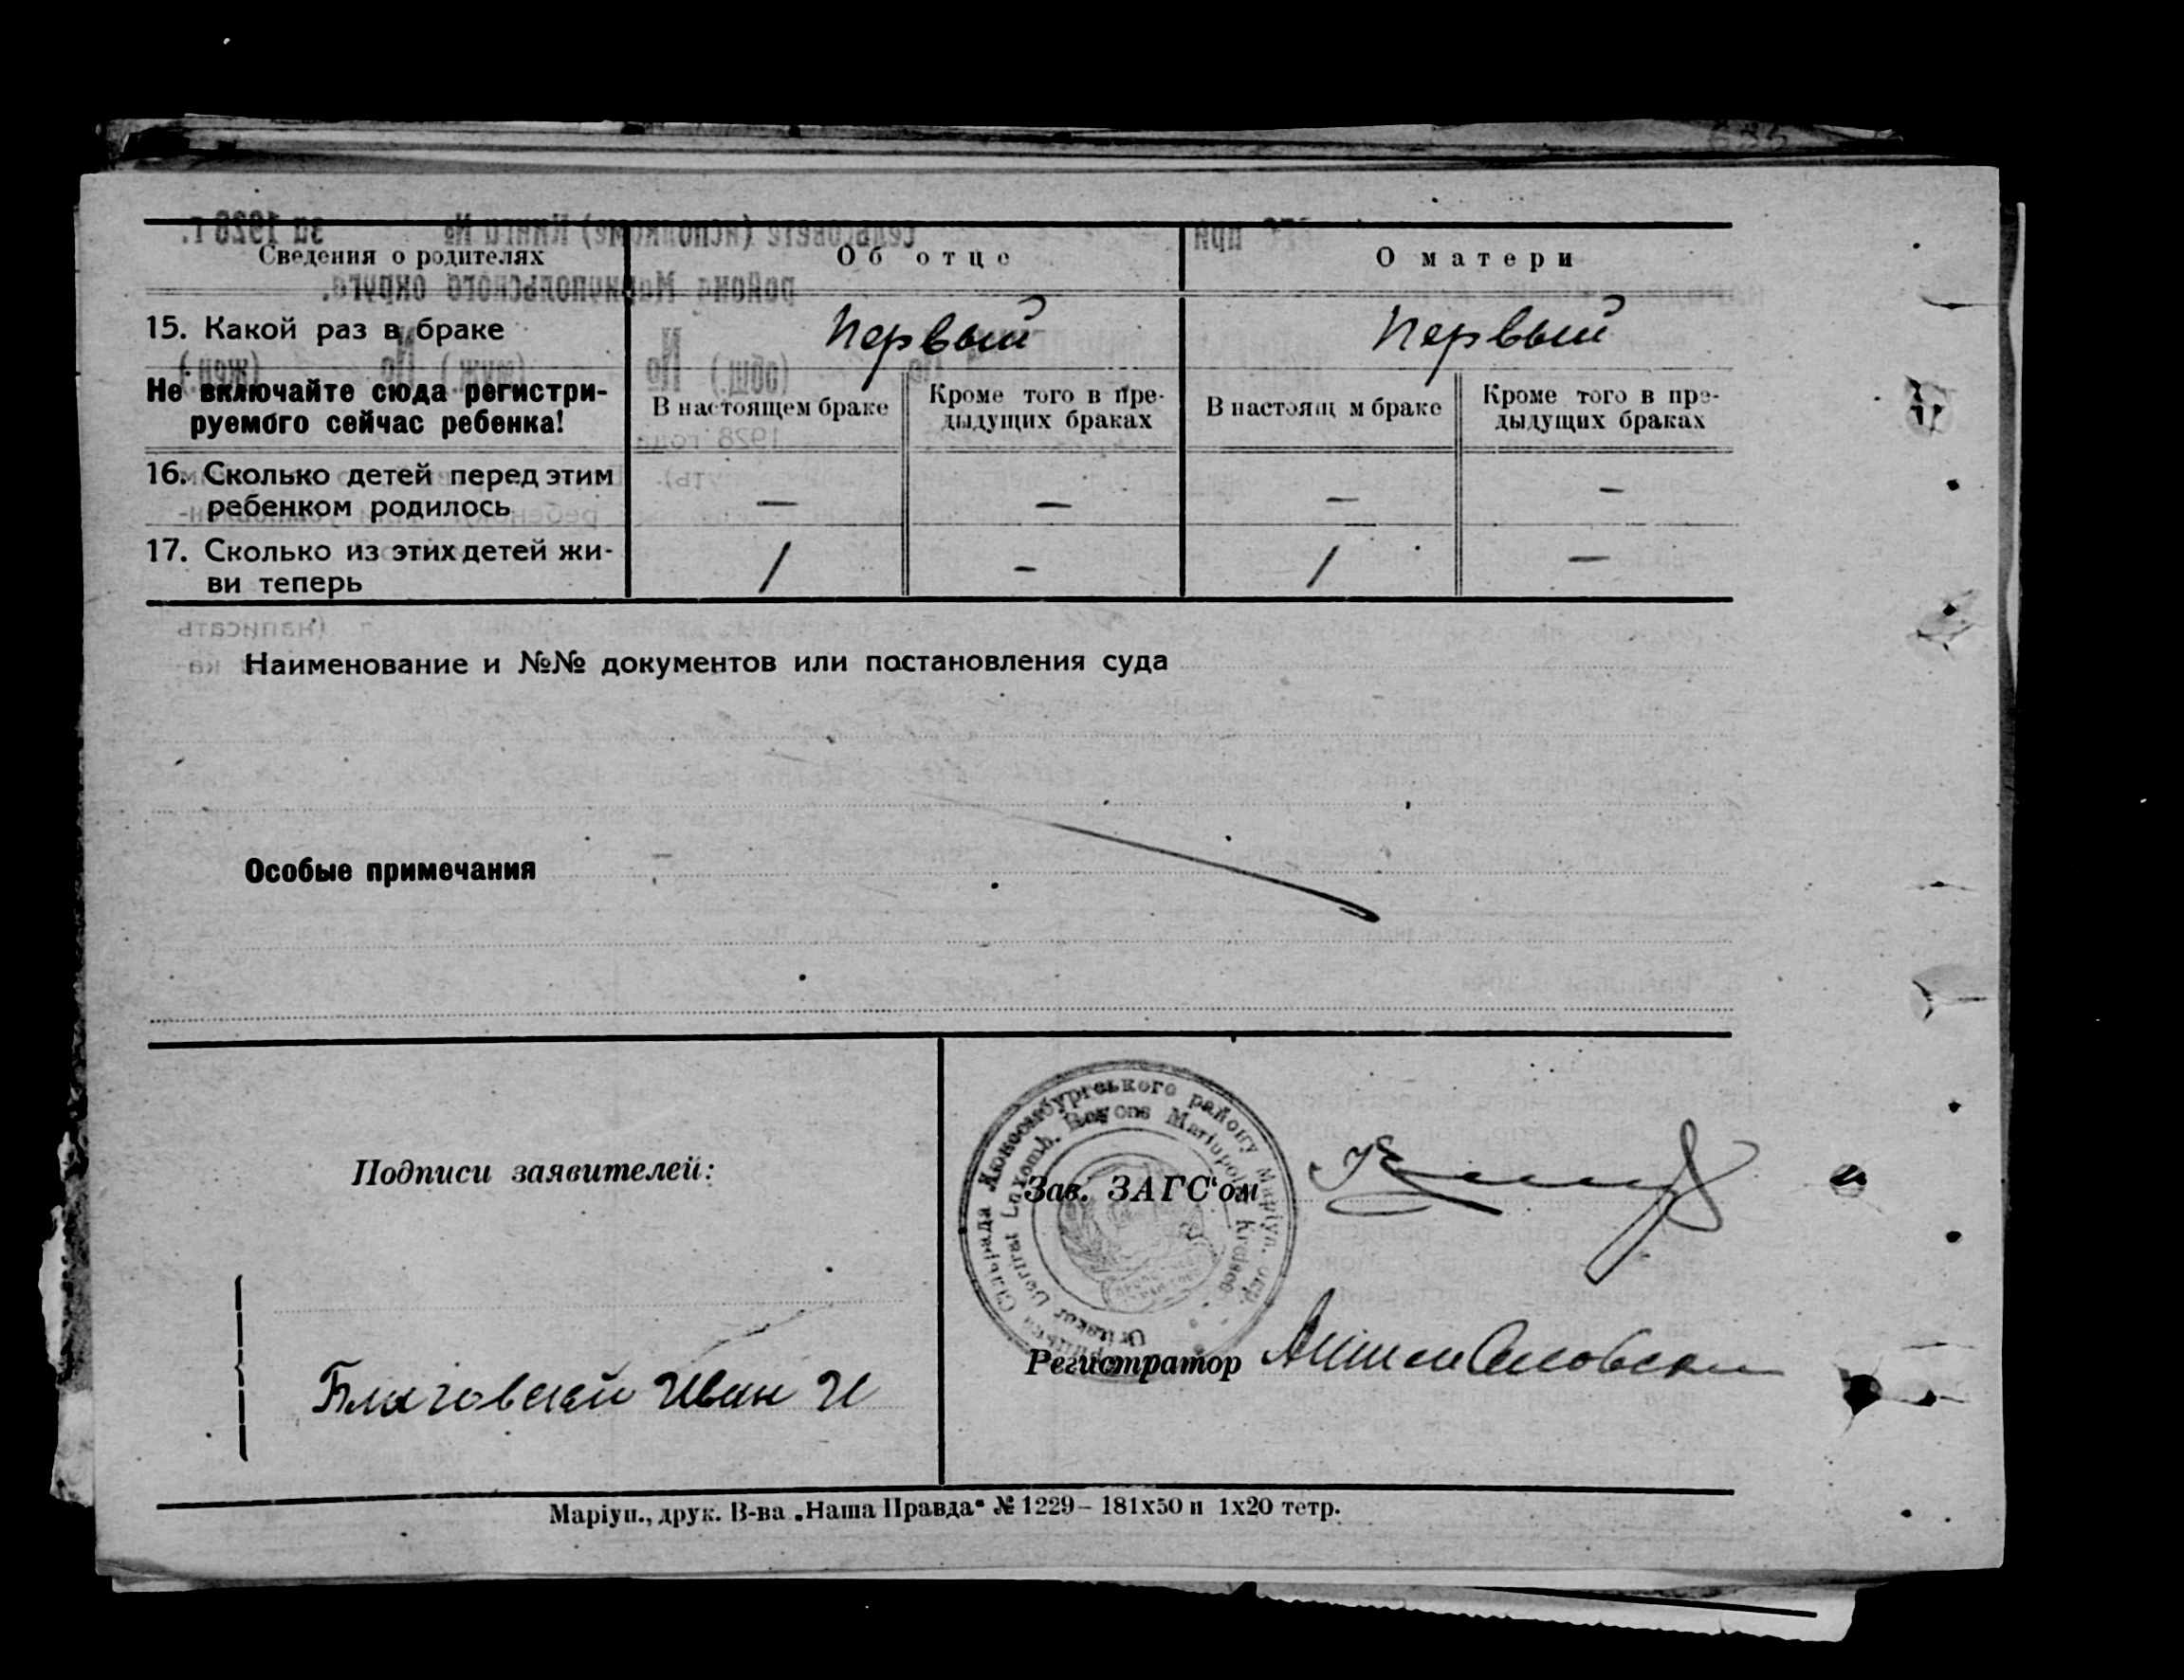 Сведения о родителях
Об отце
О матери
15. Какой раз в браке
Первый
Первый
Не включайте сюда регистри-
руемого сейчас ребенка!
В настоящем браке
Кроме того в пре-
дыдущих браках
В настоящ м браке
Кроме того в пре-
дыдущих браках
16. Сколько детей перед этим
ребенком родилось
— — — —
17. Сколько из этих детей жи-
ви теперь
/ — / —
Наименование и №№ документов или постановления суда
Особые примечания
Подписи заявителей:
Благовский Иван И
Зав. ЗАГС'ом
Регистратор
Сільрада Люксембургського району Маріуп. окр.
Rayons Mariupoler Kreises
Маріуп., друк. В-ва „Наша Правда" № 1229 – 181х50 и 1х20 тетр.